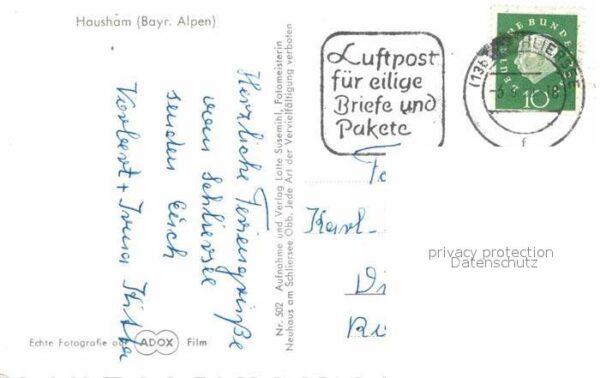 Hausham (Bayr. Alpen)
Herzliche Feriengrüße
vom Schliersee
senden Euch
Norbert + Irma
Echte Fotografie auf ADOX Film
Nr. 502 Aufnahme und Verlag Lotte Susemihl, Fotomeisterin
Neuhaus am Schliersee Obb. Jede Art der Vervielfältigung verboten
Luftpost
für eilige
Briefe und
Pakete
DEUTSCHE BUNDES
10
(13b) SCHLIERSEE
f
Karl-
privacy protection
Datenschutz